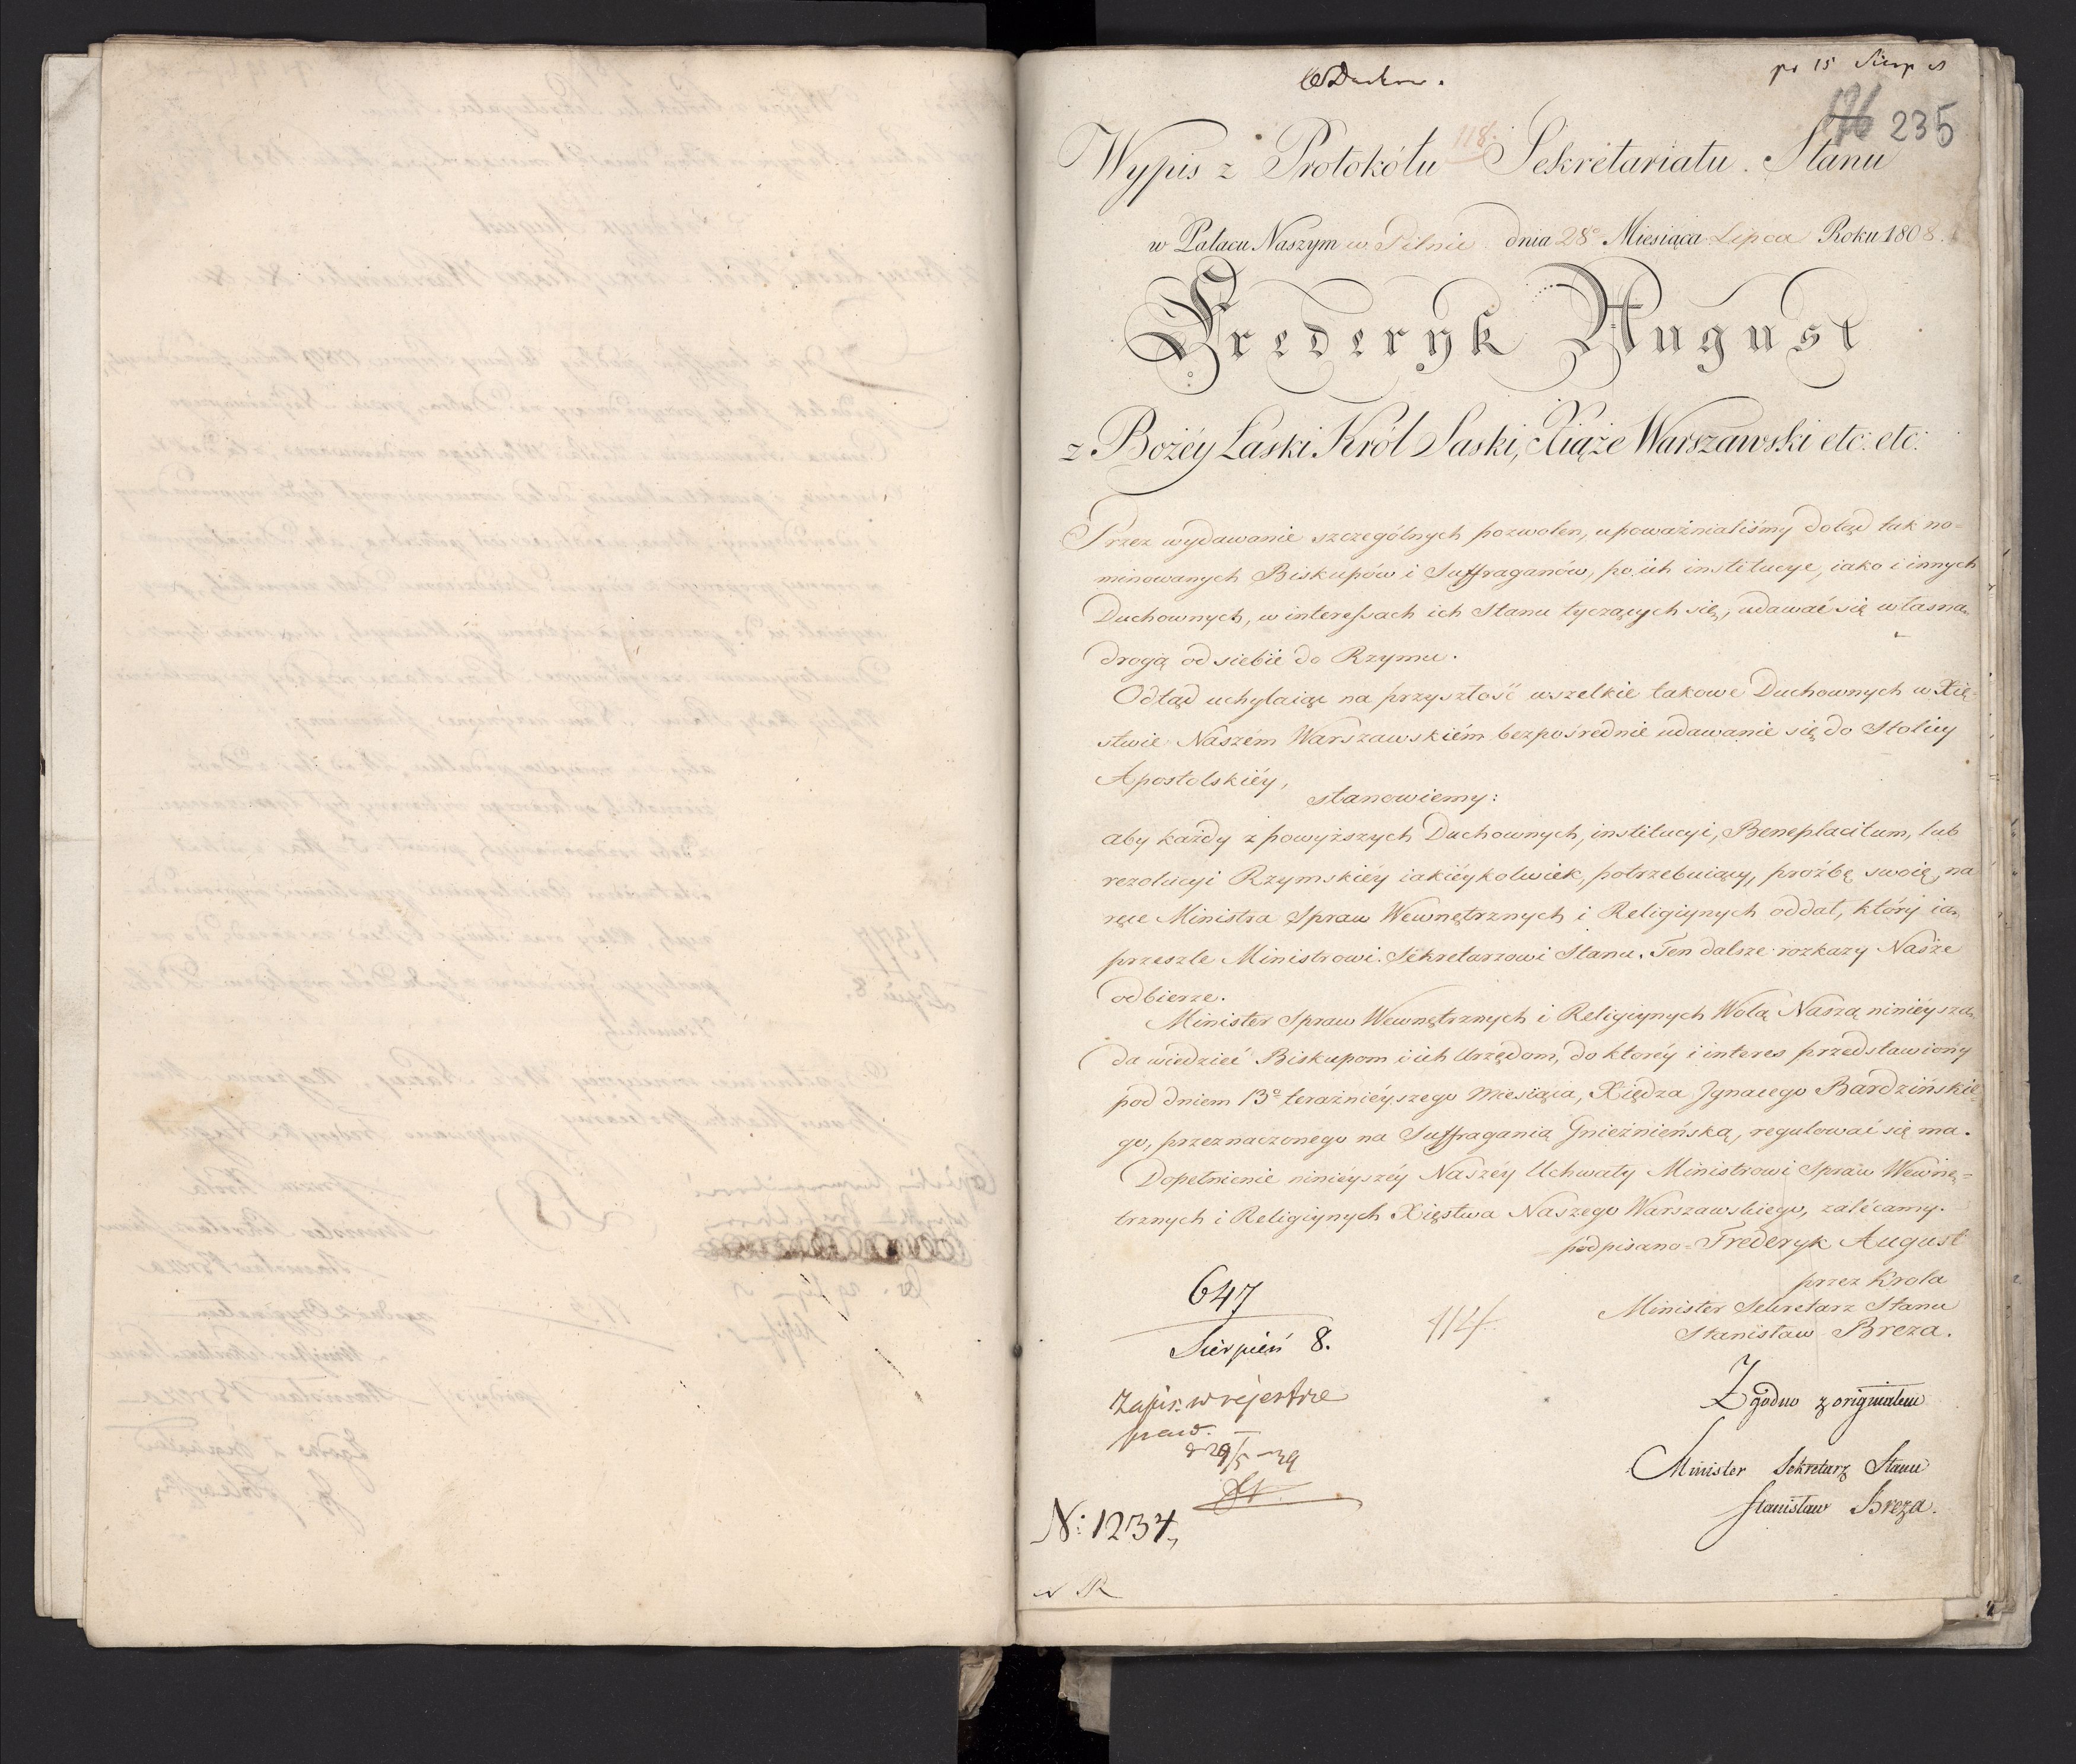 pr 15 Sierp
176 235
118
Wypis z Protokółu Sekretariatu Stanu
w Pałacu Naszym w Pilnie dnia 28o Miesiąca Lipca Roku 1808.
Fryderyk August
z Bożéy Łaski Król Saski, Xiąże Warszawski etc: etc:
Przez wydawanie szczególnych pozwolen, upoważnialiśmy dotąd tak no=
minowanych Biskupów i Suffraganów, po ich institucye, iako i innych
Duchownych, w interessach ich Stanu tyczących się, udawać się własną
drogą od siebie do Rzymu.
Odtąd uchylaiąc na przyszłość wszelkie takowe Duchownych w Xię=
stwie Naszém Warszawskiém bezpośrednie udawanie się do Stolicy
Apostolskiéy,
stanowiemy:
aby każdy z powyższych Duchownych, institucyi, Beneplacitum, lub
rezolucyi Rzymskiéy iakiéykolwiek, potrzebuiący, proźbę swoię, na
ręce Ministra Spraw Wewnętrznych i Religiynych oddał, który ią
przeszle Ministrowi Sekretarzowi Stanu. Ten dalsze rozkazy Nasze
odbierze.
Minister Spraw Wewnętrznych i Religiynych Wolą Naszą niniéyszą
da wiedzieć Biskupom i ich Urzędom, do któréy i interes przedstawiony
pod dniem 13o teraźnieyszego Miesiąca, Xiędza Jgnacego Bardzińskie=
go, przeznaczonego na Suffraganią Gnieźnieńską, regulować się ma.
Dopełnienie niniéyszéy Naszéy Uchwały Ministrowi Spraw Wewnę=
trznych i Religiynych Xięstwa Naszego Warszawskiego, zalécamy.
podpisano = Frederyk August
przez Krola
Minister Sekretarz Stanu
Stanisław Breza.
647
Sierpień 8.
114
Zgodno z originałem
Minister Sekretarz Stanu
Stanisław Breza.
Zapis. w rejestrze
praw.
d 29/5 -39
N: 1234,